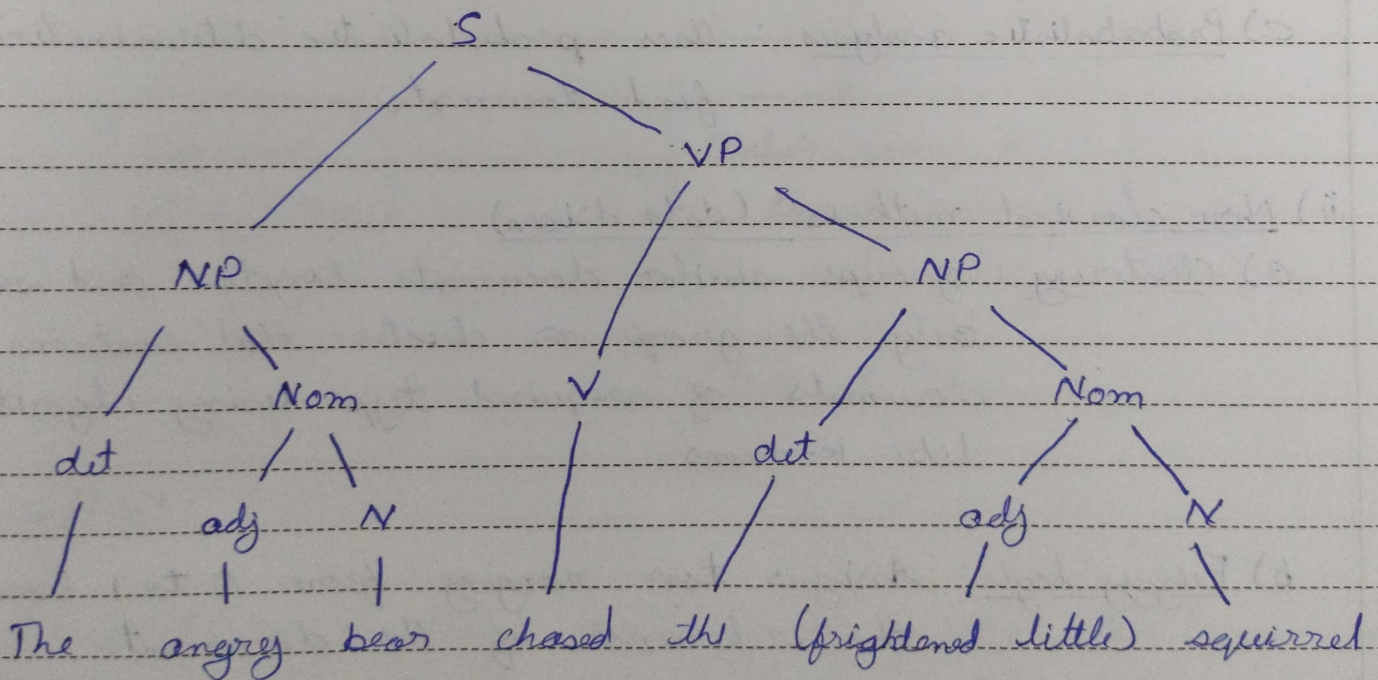 S
VP
NP NP
Nom V Nom
det det
adj N adj N
The angry bear chased the (frightened little) squirrel